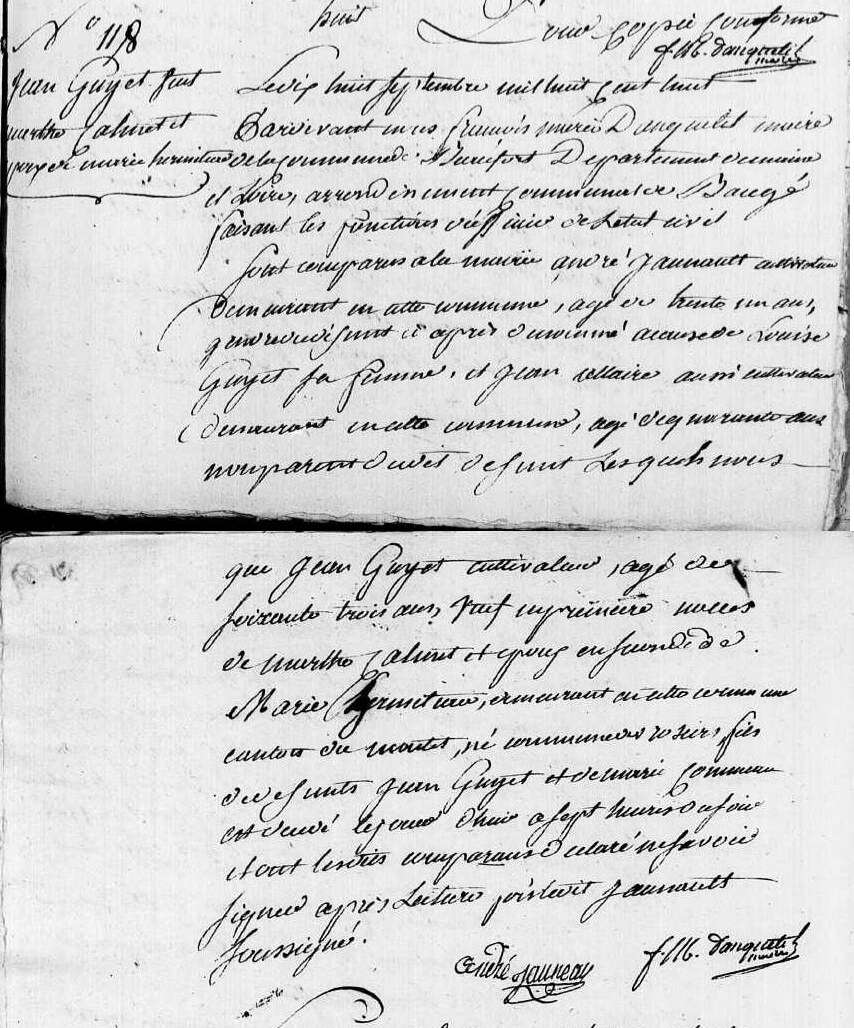 huit
Pour Copie Conforme
N° 118
f. M. Danquetil
maire
Jean Guyet veuf
marthe Jahuet et
epoux de marie hermiture
Le dix huit septembre mil huit cent huit
Pardevant nous françois marie Danquetil maire
de la commune de Departement de maine
et Loire, arrondissement communal de Baugé
faisant les fonctions d'officier de l'etat civil
sont comparus a la mairie andré Jaunault cultivateur
demeurant en cette commune, agé de trente un ans,
gendre du defunt ci après denommé acause de Louise
Guyet sa femme, et Jean allaire aussi cultivateur
demeurant en cette commune, agé de quarante ans
non parent dudit defunt Lesquels nous
que Jean Guyet cultivateur, agé de
soixante trois ans, veuf en premiere noces
de marthe Jahuet et epoux en seconde de
Marie hermiture, demeurant en cette commune
canton de , né commune des rosiers, fils
de defunts Jean Guyet et de marie Commeau
est decedé le jour d'hier a sept heures du soir
et ont lesdits comparans declaré ne savoir
signer après Lecture fors ledit Jaunault
soussigné.
André Jauneau
f. M. Danquetil
maire